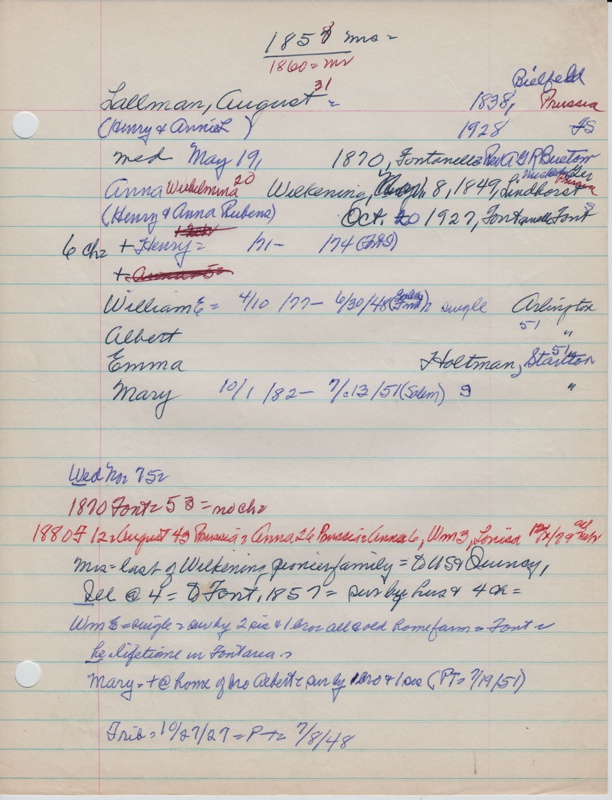 1858 mrs =
1860 = mr
Bielfeld
Lallman, August 31 = 1838, Prussia
(Henry & Annie L ) 1928 FS
med May 19, 1870, Fontanelle Rev A G R Buxton
Anna Wilhelmina 20 Wilkening, 8, 1849, Lindhorst Prussia
(Henry & Anna Rubens) Oct 20 1927, Fontanelle Font
6 ch = + Henry = /71 - /74 (FS)
William E = 4/10 /77 - 6/30/48 single Arlington
Albert 51 "
Emma Holtman, Stanton 51
Mary 10/1 /82 - 7/13/51 (Salem) 9 "
Wed No 75 =
1870 Font = 58 = no ch =
1880 F 12 = August 43 Prussia = Anna 26 Prussia = Anna 6, Wm 3, Louisa
mrs = last of Wilkening pioneer family = to USA Quincy,
Ill @ 4 = to Font, 1857 = surv by hus & 4 ch =
Wm E = single = surv by 2 sis & 1 bro all @ old home farm = Font =
he lifetime in Font area =
Mary = + @ home of bro Albert = surv by bro & 1 sis (PT = 7/19/51)
Trib = 10/27/27 = P + = 7/8/48